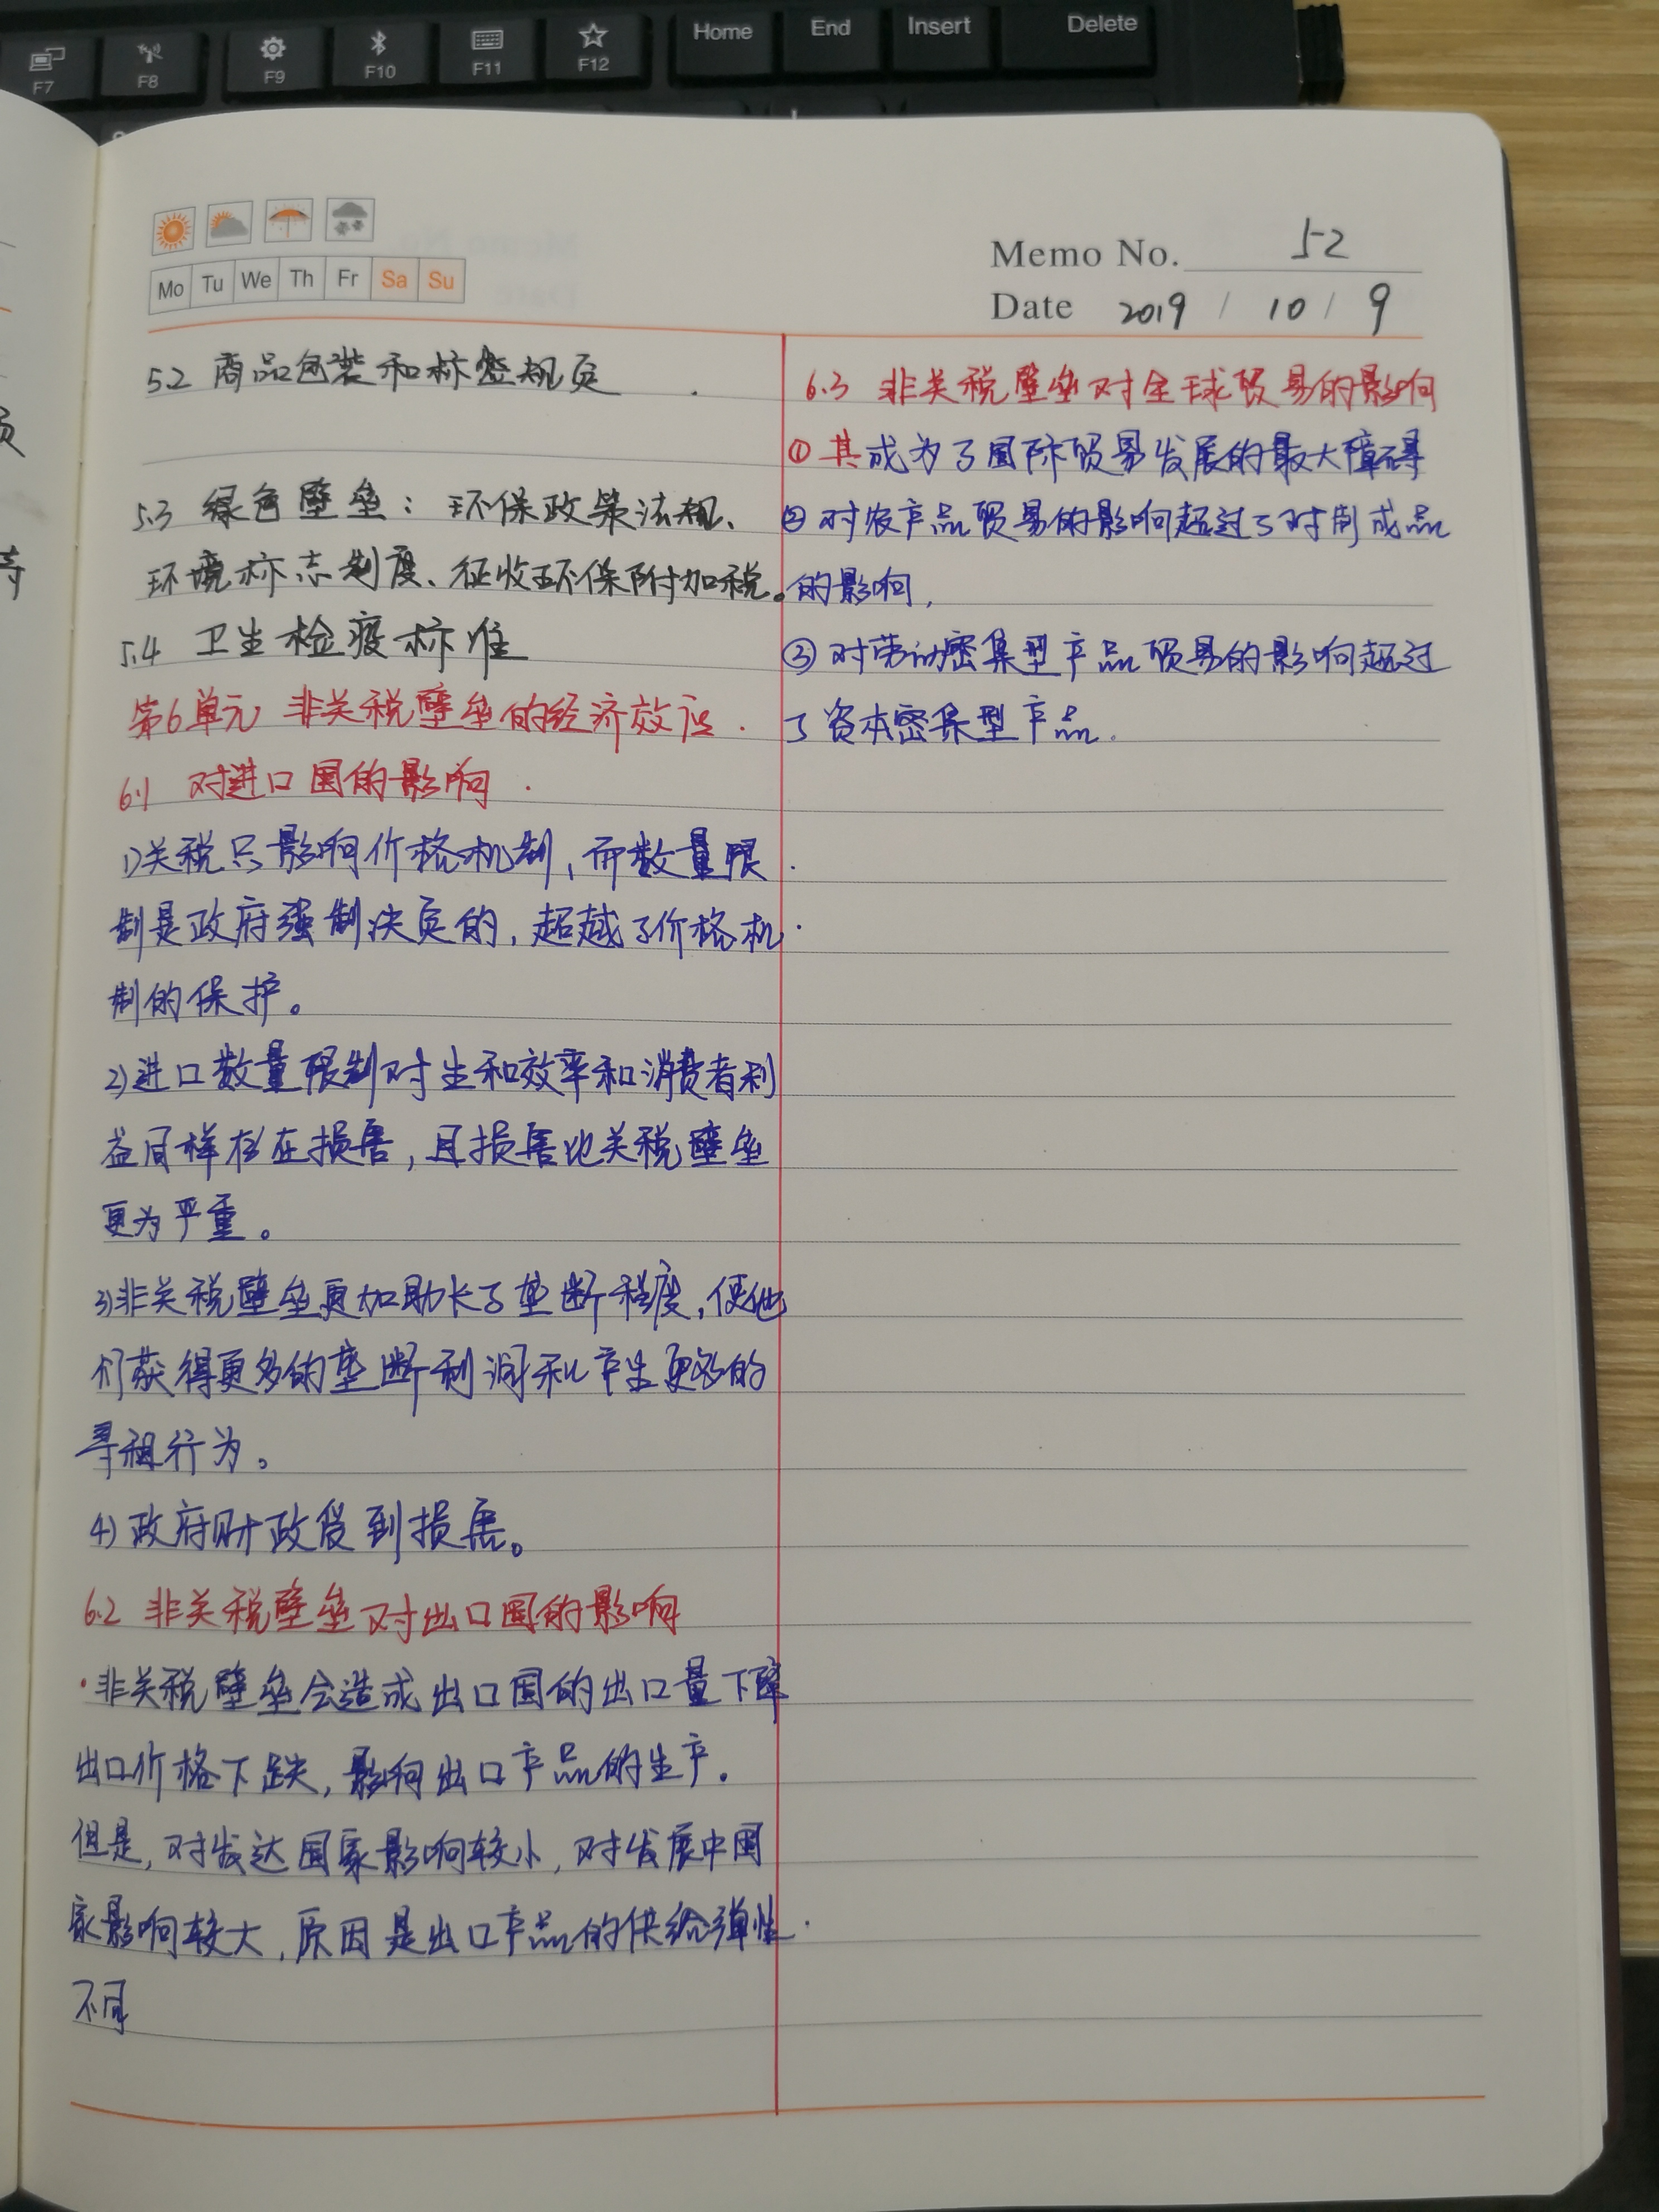 F7 F8 F9 F10 F11 F12 Home End Insert Delete
Mo Tu We Th Fr Sa Su
Memo No. 5-2
Date 2019 / 10 / 9
5.2 商品包装和标签规定
5.3 绿色壁垒：环保政策法规、
环境标志制度、征收环保附加税。
5.4 卫生检疫标准
第6单元 非关税壁垒的经济效应
6.1 对进口国的影响
1)关税只影响价格机制，而数量限
制是政府强制决定的，超越了价格机
制的保护。
2)进口数量限制对生和效率和消费者利
益同样存在损害，且损害比关税壁垒
更为严重。
3)非关税壁垒更加助长了垄断程度，使他
们获得更多的垄断利润和产生更多的
寻租行为。
4)政府财政受到损害。
6.2 非关税壁垒对出口国的影响
·非关税壁垒会造成出口国的出口量下降
出口价格下跌，影响出口产品的生产。
但是，对发达国家影响较小，对发展中国
家影响较大，原因是出口产品的供给弹性
不同
6.3 非关税壁垒对全球贸易的影响
①其成为了国际贸易发展的最大障碍
②对农产品贸易的影响超过了对制成品
的影响，
③对劳动密集型产品贸易的影响超过
了资本密集型产品.